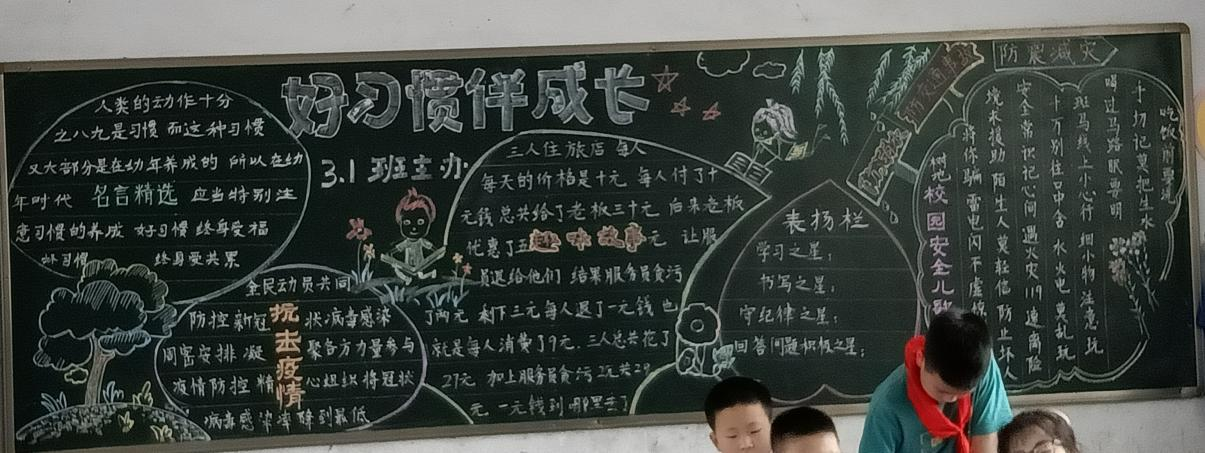 好习惯伴成长
3.1班主办
人类的动作十分
之八九是习惯 而这种习惯
又大部分是在幼年养成的 所以在幼
年时代 名言精选 应当特别注
意习惯的养成 好习惯 终身受福
坏习惯 终身受累
全民动员共同
防控新冠 状病毒感染
周密安排 凝 聚各方力量参与
疫情防控 精 心组织将冠状
病毒感染率降到最低
抗击疫情
三人住旅店 每人
每天的价格是十元 每人付了十
元钱 总共给了老板三十元 后来老板
优惠了五 趣味故事 元 让服
员退给他们 结果服务员贪污
了两元 剩下三元每人退了一元钱 也
就是每人消费了9元. 三人总共花了
27元 加上服务员贪污2元共29
元 一元钱到哪里去了
表扬栏
学习之星:
书写之星:
守纪律之星:
回答问题积极之星:
防震减灾
防交通事故
吃饭前要洗
千切记莫把生水
喝过马路眼要明
斑马线上小心行 细小物 注意玩
十万别往口中含 水火电莫乱玩
安全常识记心间 遇火灾119速离险
境求援助 陌生人莫轻信 防止坏人
将你骗 雷电闪不虚
校园安全儿歌